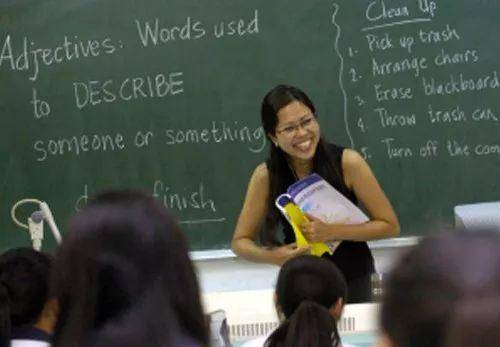 Adjectives: Words used
to DESCRIBE
someone or something
finish
Clean Up
1. Pick up trash
2. Arrange chairs
3. Erase blackboard
4. Throw trash can
5. Turn off the com